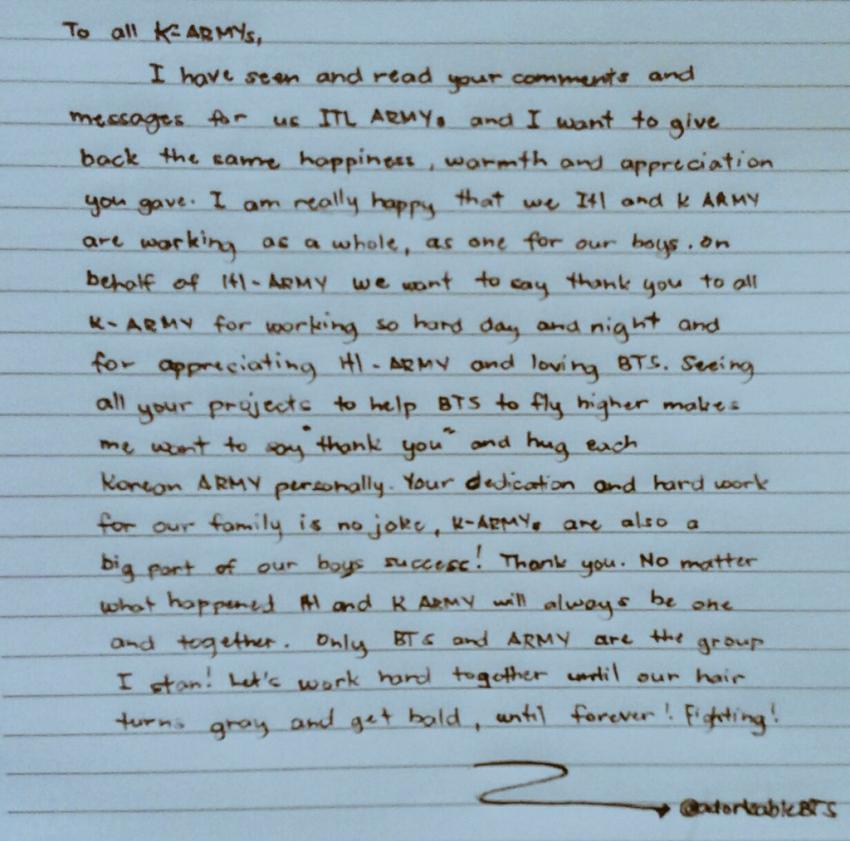 To all K-ARMYs,
I have seen and read your comments and
messages for us ITL ARMYs and I want to give
back the same happiness, warmth and appreciation
you gave. I am really happy that we Itl and K ARMY
are working as a whole, as one for our boys. On
behalf of Itl-ARMY we want to say thank you to all
K-ARMY for working so hard day and night and
for appreciating Itl-ARMY and loving BTS. Seeing
all your projects to help BTS to fly higher makes
me want to say "thank you" and hug each
Korean ARMY personally. Your dedication and hard work
for our family is no joke, K-ARMYs are also a
big part of our boys success! Thank you. No matter
what happened Itl and K ARMY will always be one
and together. Only BTS and ARMY are the group
I stan! Let's work hard together until our hair
turns gray and get bald, until forever! Fighting!
@adorkableBTS